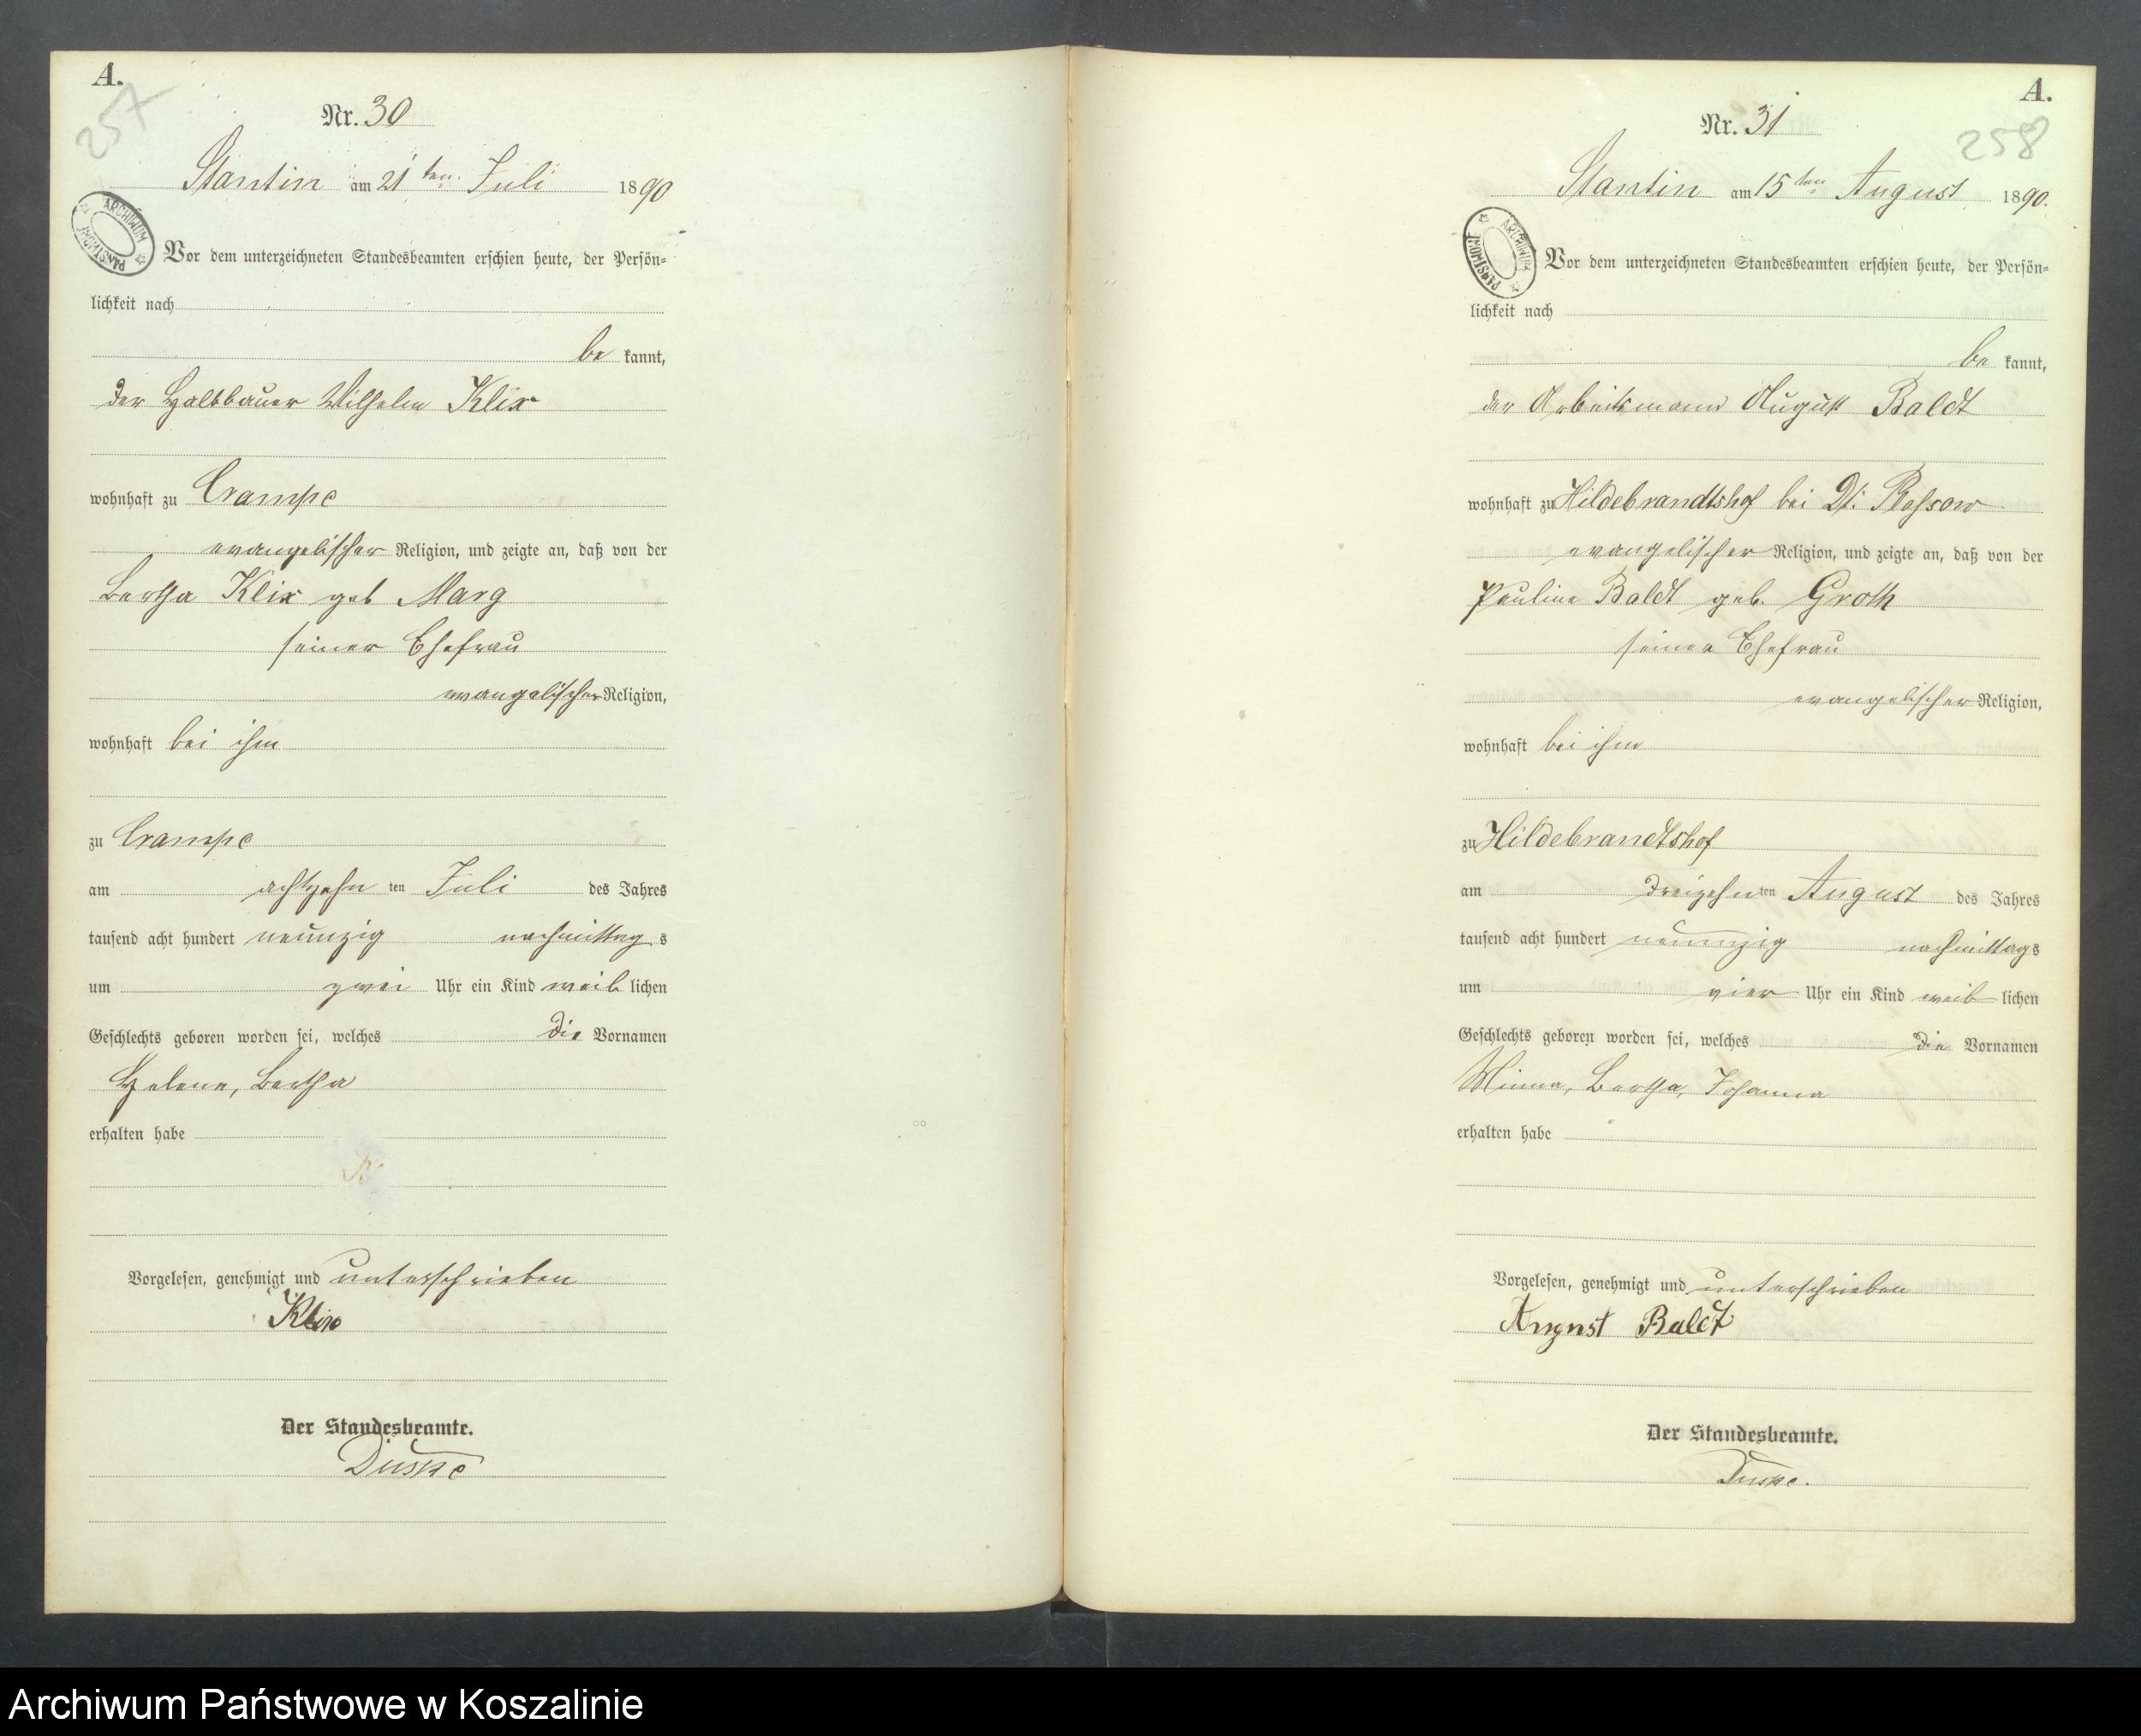 A.
257
Nr. 30
Stantin am 21ten Juli 1890
ARCHIWUM PAŃSTWOWE
Vor dem unterzeichneten Standesbeamten erschien heute, der Persön-
lichkeit nach
be kannt,
der Halbbauer Wilhelm Klix
wohnhaft zu Crampe
evangelischer Religion, und zeigte an, daß von der
Bertha Klix geb Marg
seiner Ehefrau
evangelischer Religion,
wohnhaft bei ihm
zu Crampe
am achtzehn ten Juli des Jahres
tausend acht hundert neunzig nachmittag s
um zwei Uhr ein Kind weib lichen
Geschlechts geboren worden sei, welches die Vornamen
Helene, Bertha
erhalten habe
Vorgelesen, genehmigt und unterschrieben
Klix
Der Standesbeamte.
A.
258
Nr. 31
Stantin am 15ten August 1890.
ARCHIWUM PAŃSTWOWE
Vor dem unterzeichneten Standesbeamten erschien heute, der Persön-
lichkeit nach
be kannt,
der Arbeitsmann August Baldt
wohnhaft zu Hildebrandtshof bei Dt.
evangelischer Religion, und zeigte an, daß von der
Pauline Baldt geb. Groth
seiner Ehefrau
evangelischer Religion,
wohnhaft bei ihm
zu Hildebrandtshof
am dreizehn ten August des Jahres
tausend acht hundert neunzig nachmittag s
um vier Uhr ein Kind weib lichen
Geschlechts geboren worden sei, welches die Vornamen
Minna, Bertha, Johanna
erhalten habe
Vorgelesen, genehmigt und unterschrieben
August Baldt
Der Standesbeamte.
Archiwum Państwowe w Koszalinie